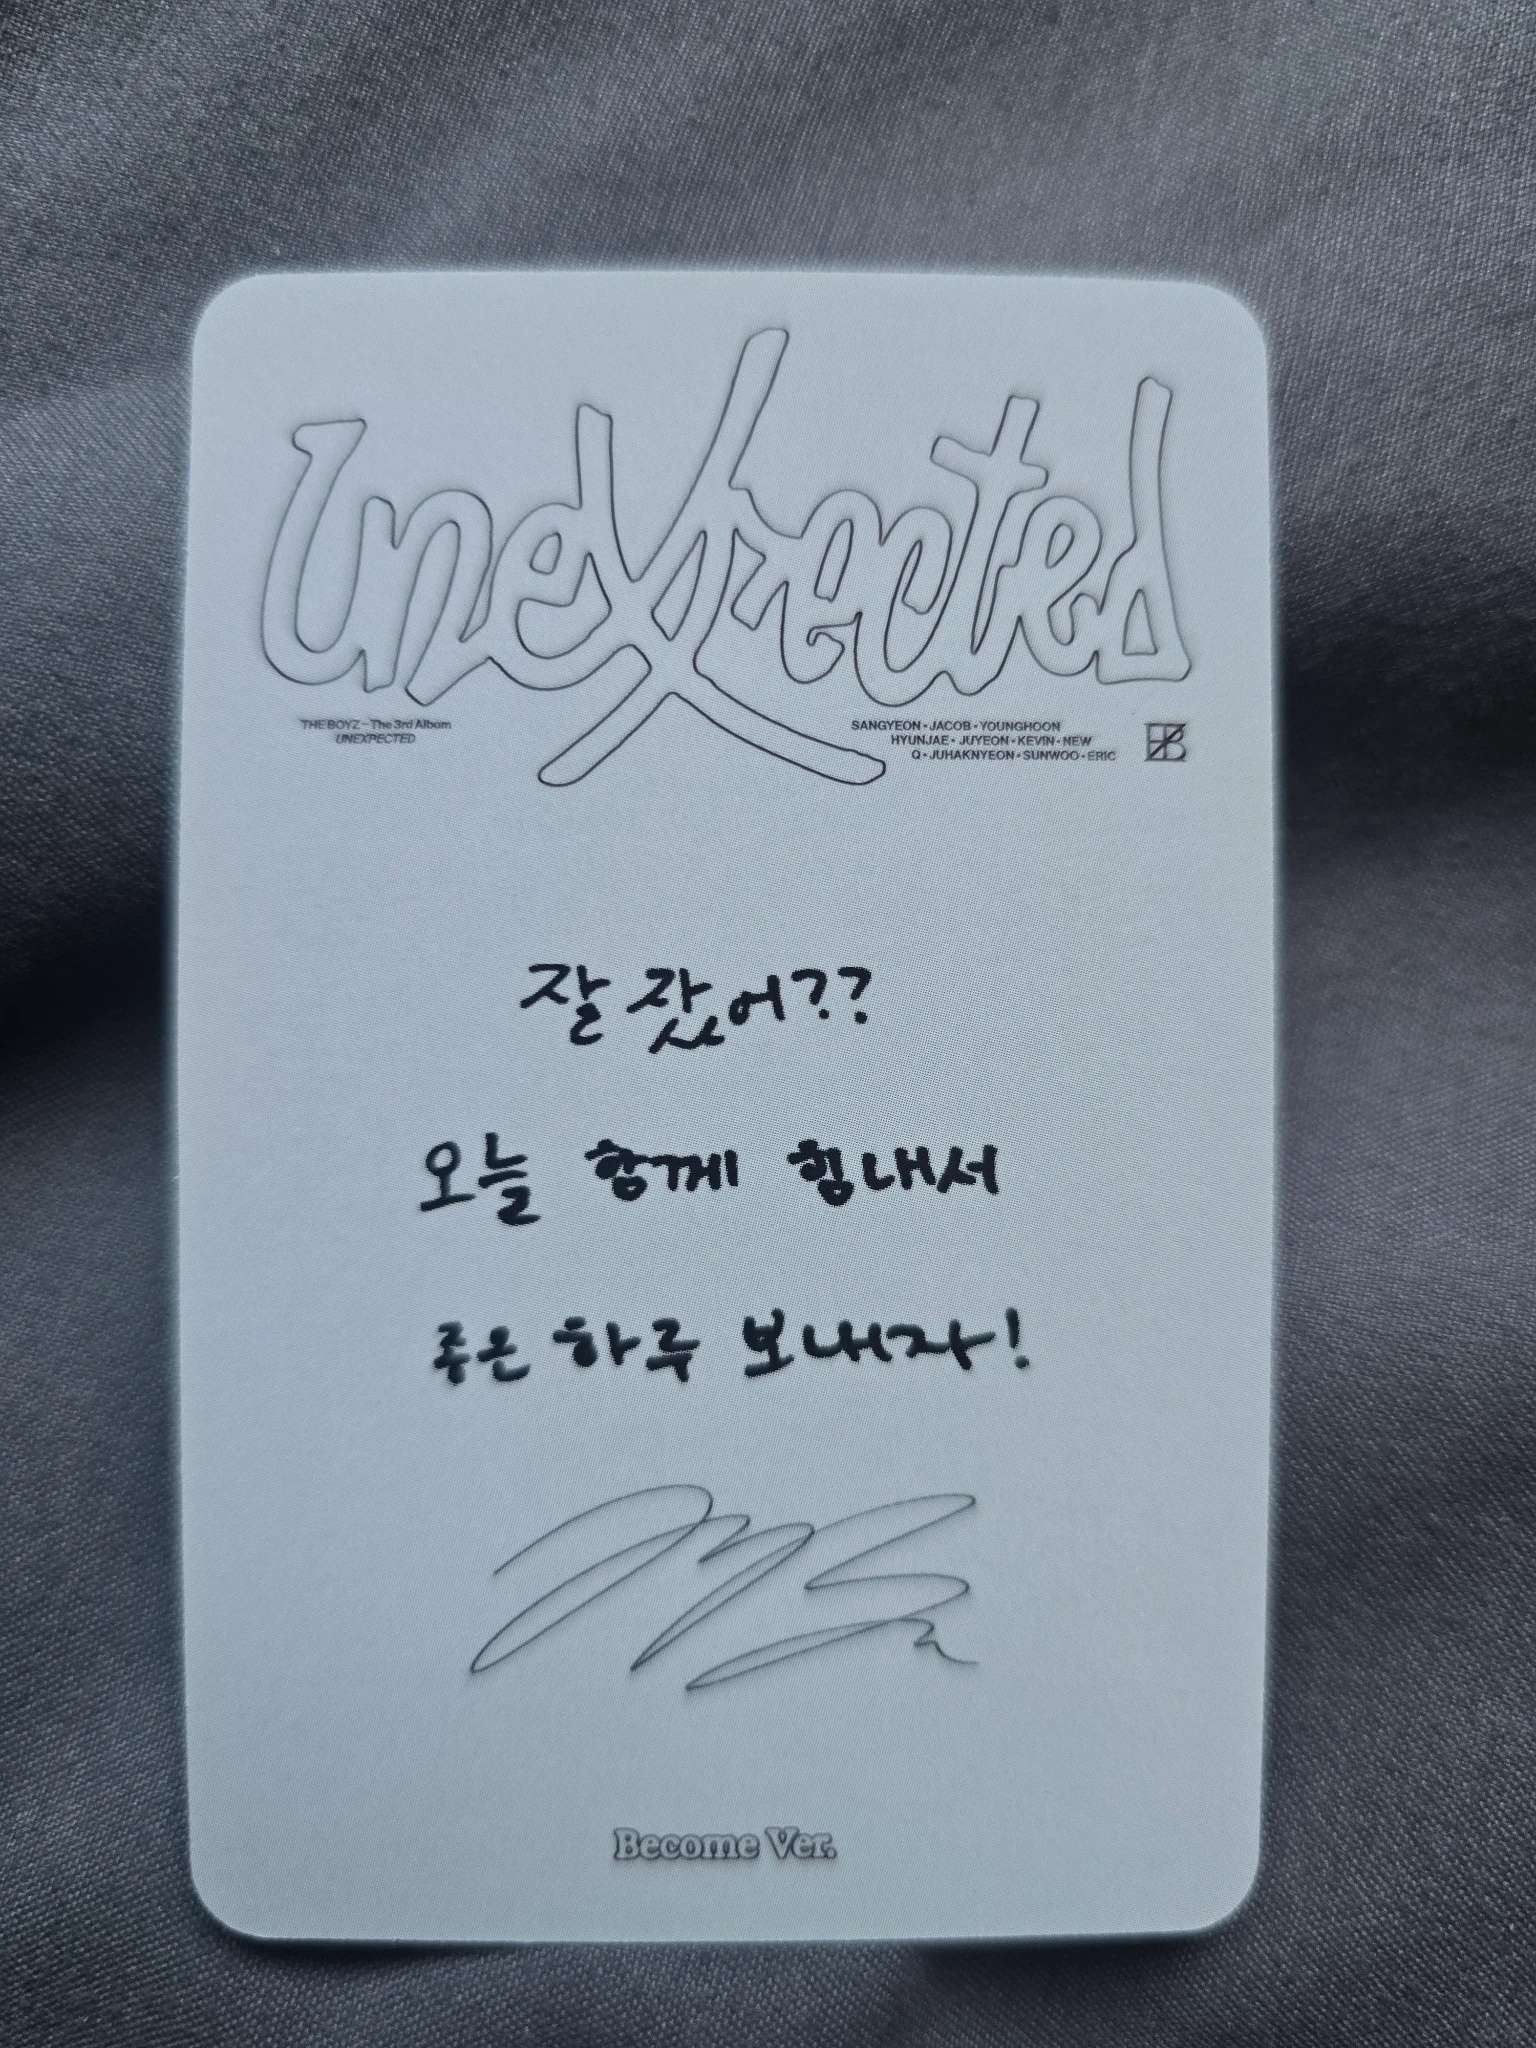 Unexpected
THE BOYZ – The 3rd Album
UNEXPECTED
SANGYEON • JACOB • YOUNGHOON
HYUNJAE • JUYEON • KEVIN • NEW
Q • JUHAKNYEON • SUNWOO • ERIC
잘 잤어??
오늘 함께 힘내서
좋은 하루 보내자!
Become Ver.